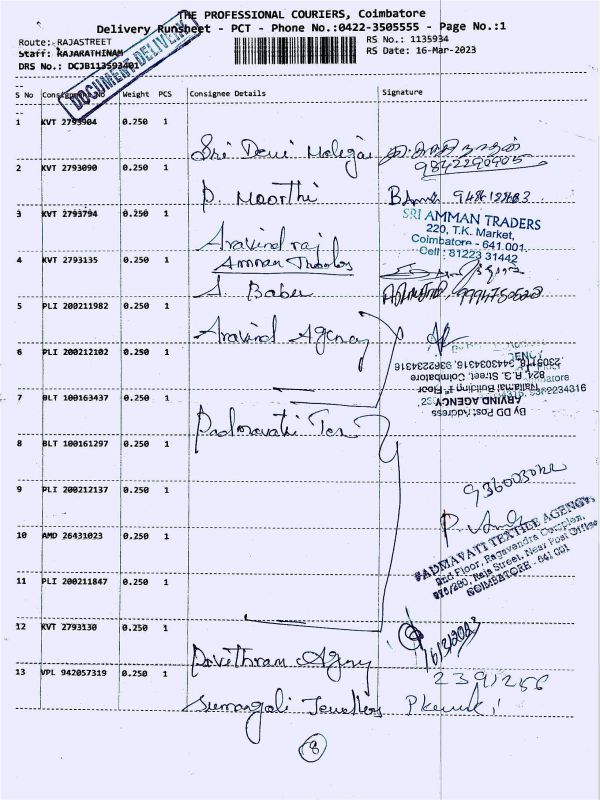 THE PROFESSIONAL COURIERS, Coimbatore
Delivery Runsheet - PCT - Phone No.:0422-3505555 - Page No.:1
Route: RAJASTREET
RS No.: 1135934
Staff: RAJARATHINAM
RS Date: 16-Mar-2023
DRS No.: DCJB113593401
DOCUMENT DELIVERY
S No Consignment No Weight PCS Consignee Details Signature
1 KVT 2793904 0.250 1
Sri Devi
9842290905
2 KVT 2793090 0.250 1
P. Moorthi
3 KVT 2793794 0.250 1
SRI AMMAN TRADERS
220, T.K. Market,
Coimbatore - 641 001.
Cell : 81223 31442
Aravind raj
4 KVT 2793135 0.250 1
Amman
S. Babu
5 PLI 200211982 0.250 1
Aravind Agency
6 PLI 200212102 0.250 1
By DD Post Address
ARVIND AGENCY
Nallamai Building 1st Floor
824, R.S. Street, Coimbatore
7 BLT 100163437 0.250 1
Padmavati Tex
8 BLT 100161297 0.250 1
9 PLI 200212137 0.250 1
10 AMD 26431023 0.250 1
PADMAVATI TEXTILE AGENCY,
2nd Floor, Ragavendra Complex,
Raja Street, Near Post Office
COIMBATORE - 641 001
11 PLI 200211847 0.250 1
12 KVT 2793130 0.250 1
16/3/2023
Pavithram Agency
13 VPL 942057319 0.250 1
2391256
Sumangali Jewellers
8